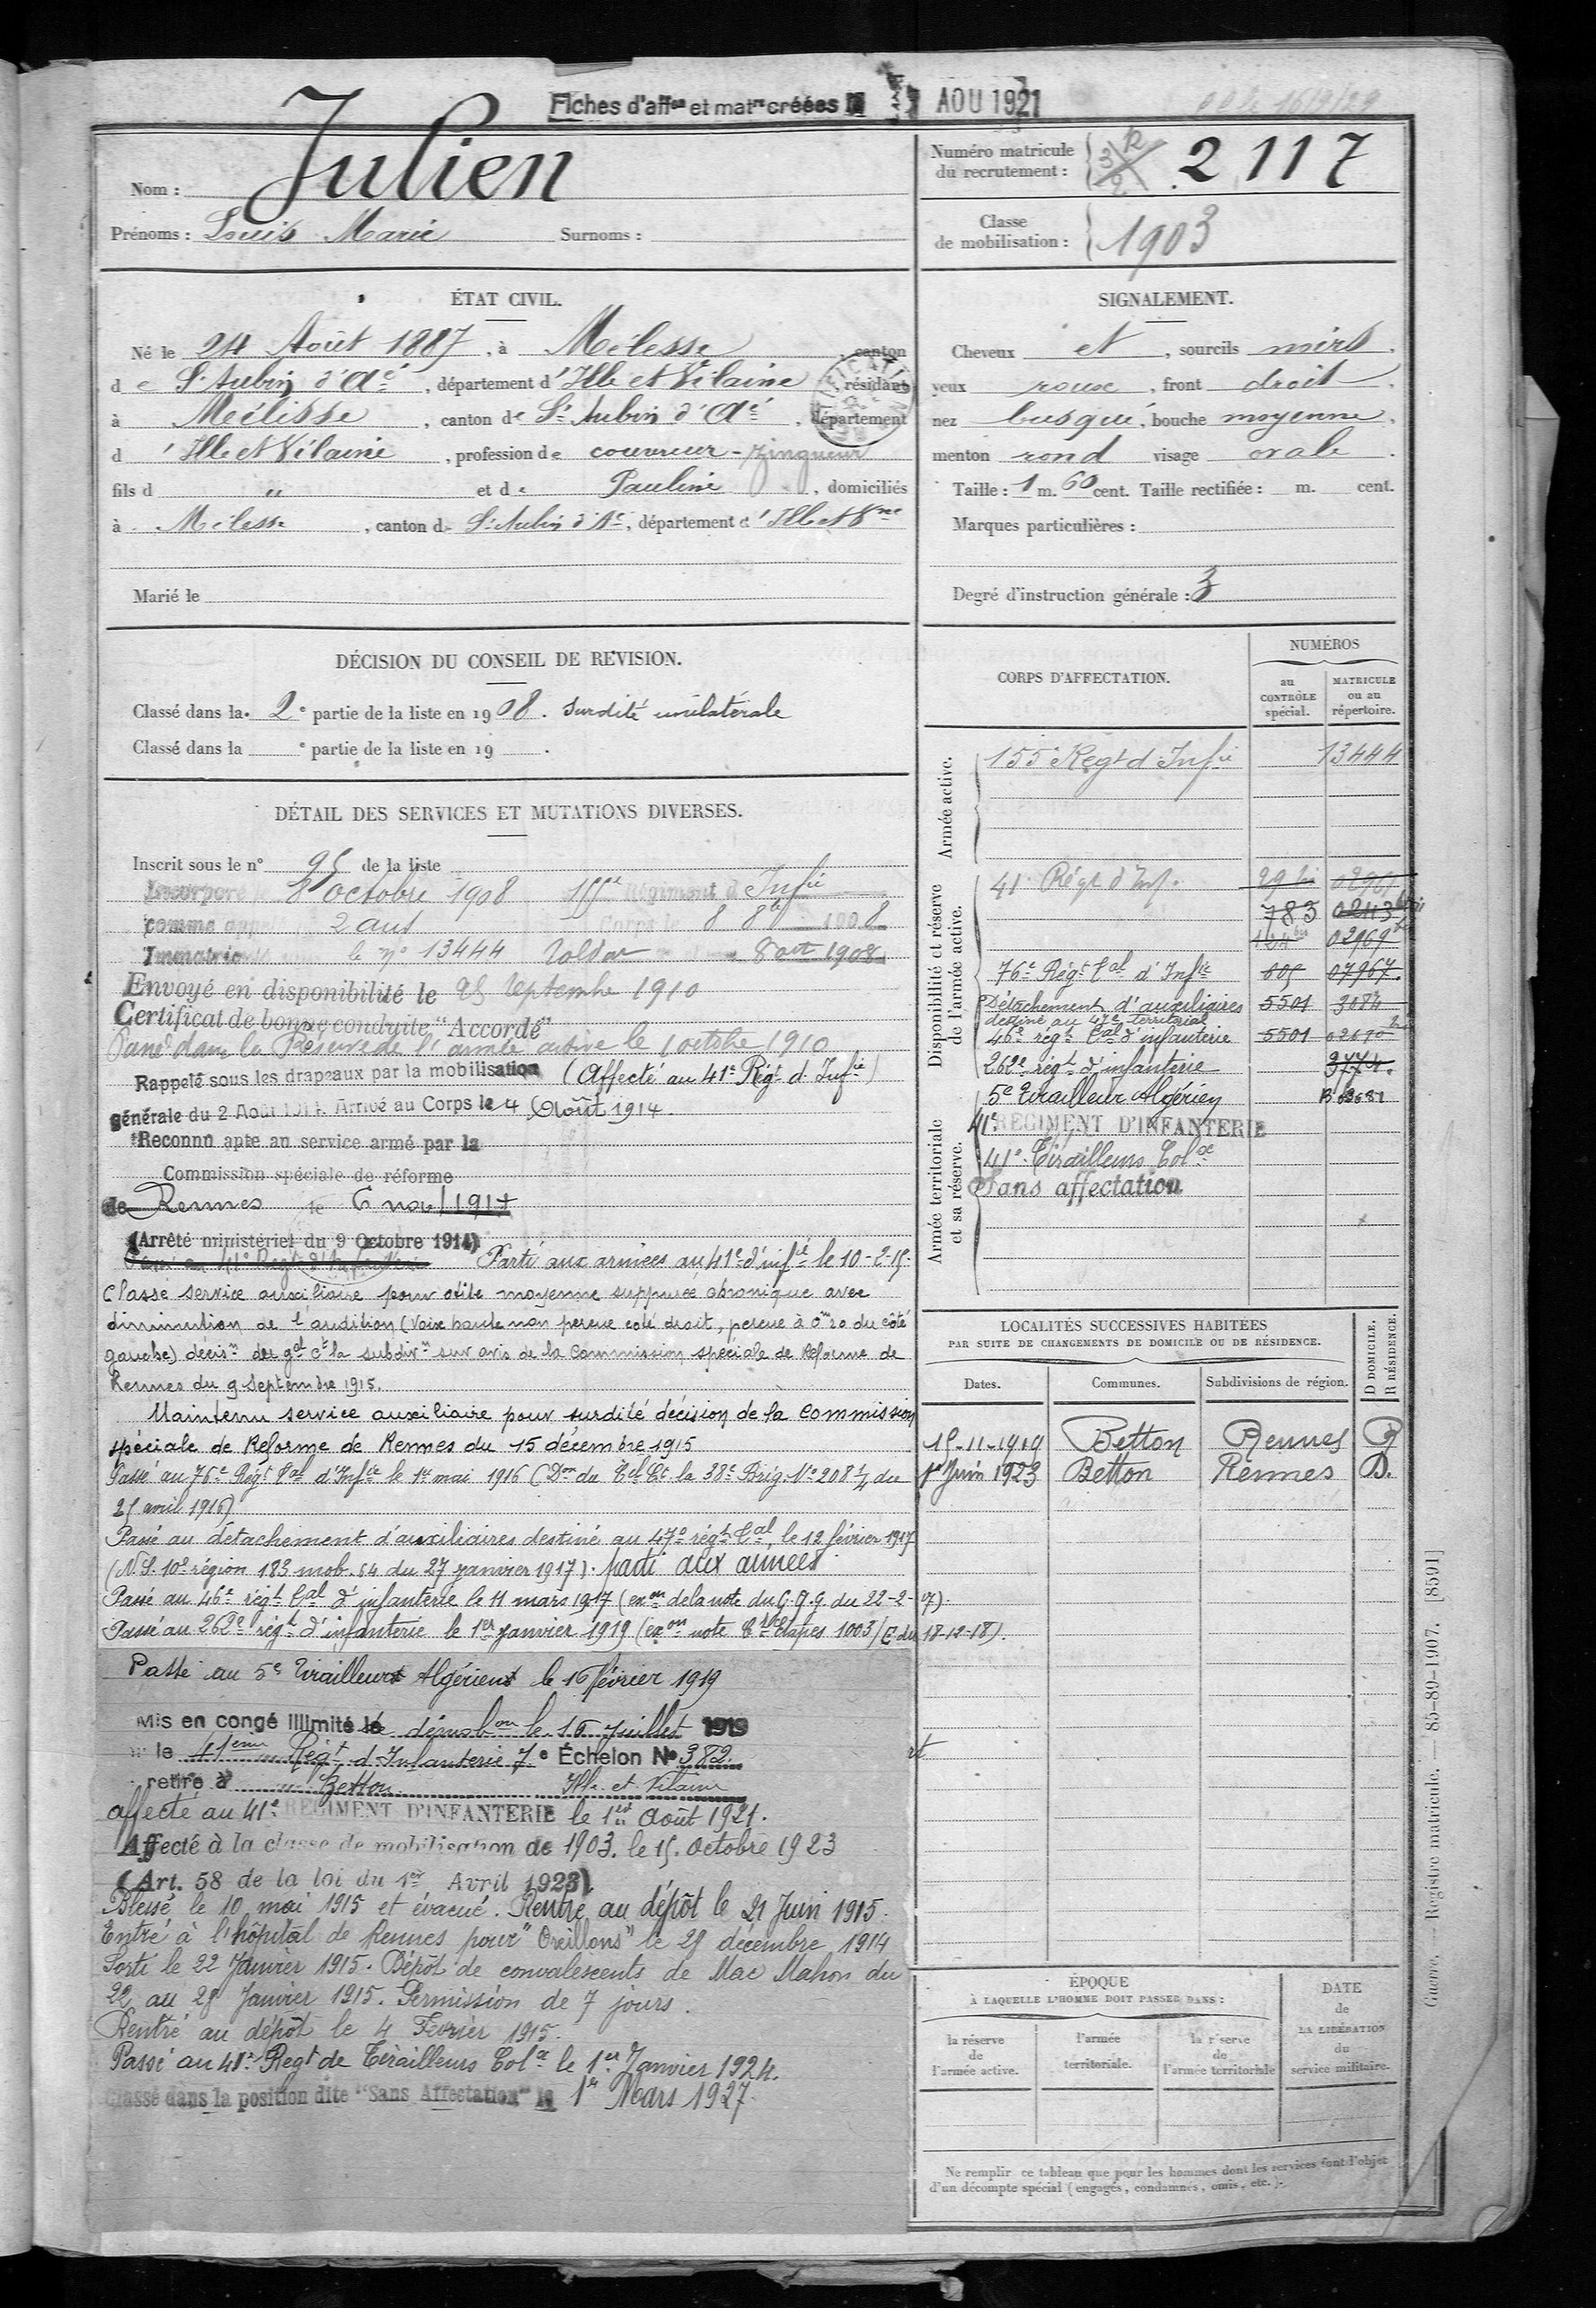 Fiches d'affon et matre créées le AOU 1921
Nom : Julien
Prénoms : Louis Marie Surnoms :
Numéro matricule du recrutement : 2117
Classe de mobilisation : 1903
ÉTAT CIVIL.
Né le 24 Août 1887, à Mélesse, canton
de St Aubin d'Aé, département d'Ille et Vilaine, résidant
à Mélisse, canton de St Aubin d'Aé, département
d'Ille et Vilaine, profession de couvreur-zingueur
fils d " et de Pauline, domiciliés
à Mélesse, canton de St Aubin d'Aé, département d'Ille et Vne
Marié le
SIGNALEMENT.
Cheveux et, sourcils noirs.
yeux roux, front droit.
nez busqué, bouche moyenne.
menton rond visage ovale.
Taille : 1 m. 60 cent. Taille rectifiée : m. cent.
Marques particulières :
Degré d'instruction générale : 3
DÉCISION DU CONSEIL DE REVISION.
Classé dans la 2e partie de la liste en 1908. Surdité unilatérale
Classé dans la e partie de la liste en 19 .
DÉTAIL DES SERVICES ET MUTATIONS DIVERSES.
Inscrit sous le n° 95 de la liste
Incorporé le 8 octobre 1908 155e Régiment d'Infie
comme appelé 2 ans Corps 8 8bre 1908
Immatriculé le no 13444 Soldat 8 oct 1908
Envoyé en disponibilité le 25 Septembre 1910
Certificat de bonne conduite "Accordé"
Passé dans la Réserve de l'armée active le 1 octobre 1910
Rappelé sous les drapeaux par la mobilisation (Affecté au 41e Régt d'Infie)
générale du 2 Août 1914. Arrivé au Corps le 4 Août 1914.
Reconnu apte au service armé par la
Commission spéciale de réforme
de Rennes le 6 nov 1914
(Arrêté ministériel du 9 Octobre 1914)
Parti aux armées au 41e d'infie le 10-2-15.
Classé service auxiliaire pour otite moyenne suppurée chronique avec
diminution de l'audition (voix haute non perçue coté droit, perçue à 0m20 du côté
gauche) décison du gal ct la subdivon sur avis de la Commission spéciale de Réforme de
Rennes du 9 Septembre 1915.
Maintenu service auxiliaire pour surdité décision de la Commission
spéciale de Réforme de Rennes du 15 décembre 1915
Passé au 76e Régt Tal d'Infie le 1er mai 1916 (Don du Cel Ct la 38e Brig. No 208 1/4 du
25 avril 1916)
Passé au détachement d'auxiliaires destiné au 47e régt Tal, le 12 février 1917
(N.S. 10e région 183 mob. 64 du 27 janvier 1917). Parti aux armées
Passé au 46e régt Tal d'infanterie le 11 mars 1917 (exon de la note du G.Q.G du 22-2-17).
Passé au 262e régt d'infanterie le 1er janvier 1919 (exon note Etapes 1003/E du 18-12-18).
Passé au 5e Tirailleurs Algériens le 16 février 1919
Mis en congé illimité de démobon le 16 Juillet 1919
le 41ème Régt d'Infanterie 7e Échelon No 382.
retire à Betton Ille et Vilaine
affecté au 41e RÉGIMENT D'INFANTERIE le 1er Août 1921.
Affecté à la classe de mobilisation de 1903. le 15 Octobre 1923
(Art. 58 de la loi du 1er Avril 1923)
Blessé le 10 mai 1915 et évacué. Rentré au dépôt le 21 Juin 1915.
Entré à l'hôpital de Rennes pour "Oreillons" le 29 décembre 1914
Sorti le 22 Janvier 1915. Dépôt de convalescents de Mac Mahon du
22 au 28 Janvier 1915. Permission de 7 jours.
Rentré au dépôt le 4 Février 1915.
Passé au 41e Regt de Tirailleurs Col le 1er Janvier 1924.
Classé dans la position dite "Sans Affectation" le 1er Mars 1927
CORPS D'AFFECTATION.
NUMÉROS
au CONTRÔLE spécial.
MATRICULE ou au répertoire.
Armée active.
155e Regt d'Infie 13444
Disponibilité et réserve de l'armée active.
41e Régt d'Inf.
783
02969
76e Régt Tal d'Infie 605 07967
Détachement d'auxiliaires 5501 3084
destiné au 47e territorial
46e régt Tal d'infanterie 5501
262e régt d'infanterie
5e Tirailleur Algérien
Armée territoriale et sa réserve.
41e RÉGIMENT D'INFANTERIE
41e Tirailleurs Col
Sans affectation
LOCALITÉS SUCCESSIVES HABITÉES
PAR SUITE DE CHANGEMENTS DE DOMICILE OU DE RÉSIDENCE.
D DOMICILE. R RÉSIDENCE.
Dates. Communes. Subdivisions de région.
15-11-1919 Betton Rennes R
1er Juin 1923 Betton Rennes D.
ÉPOQUE
À LAQUELLE L'HOMME DOIT PASSER DANS :
la réserve de l'armée active.
l'armée territoriale.
la réserve de l'armée territoriale
DATE de LA LIBÉRATION du service militaire.
Ne remplir ce tableau que pour les hommes dont les services font l'objet
d'un décompte spécial (engagés, condamnés, omis, etc.).
Guerre. Registre matricule. — 85-89-1907. [8591]